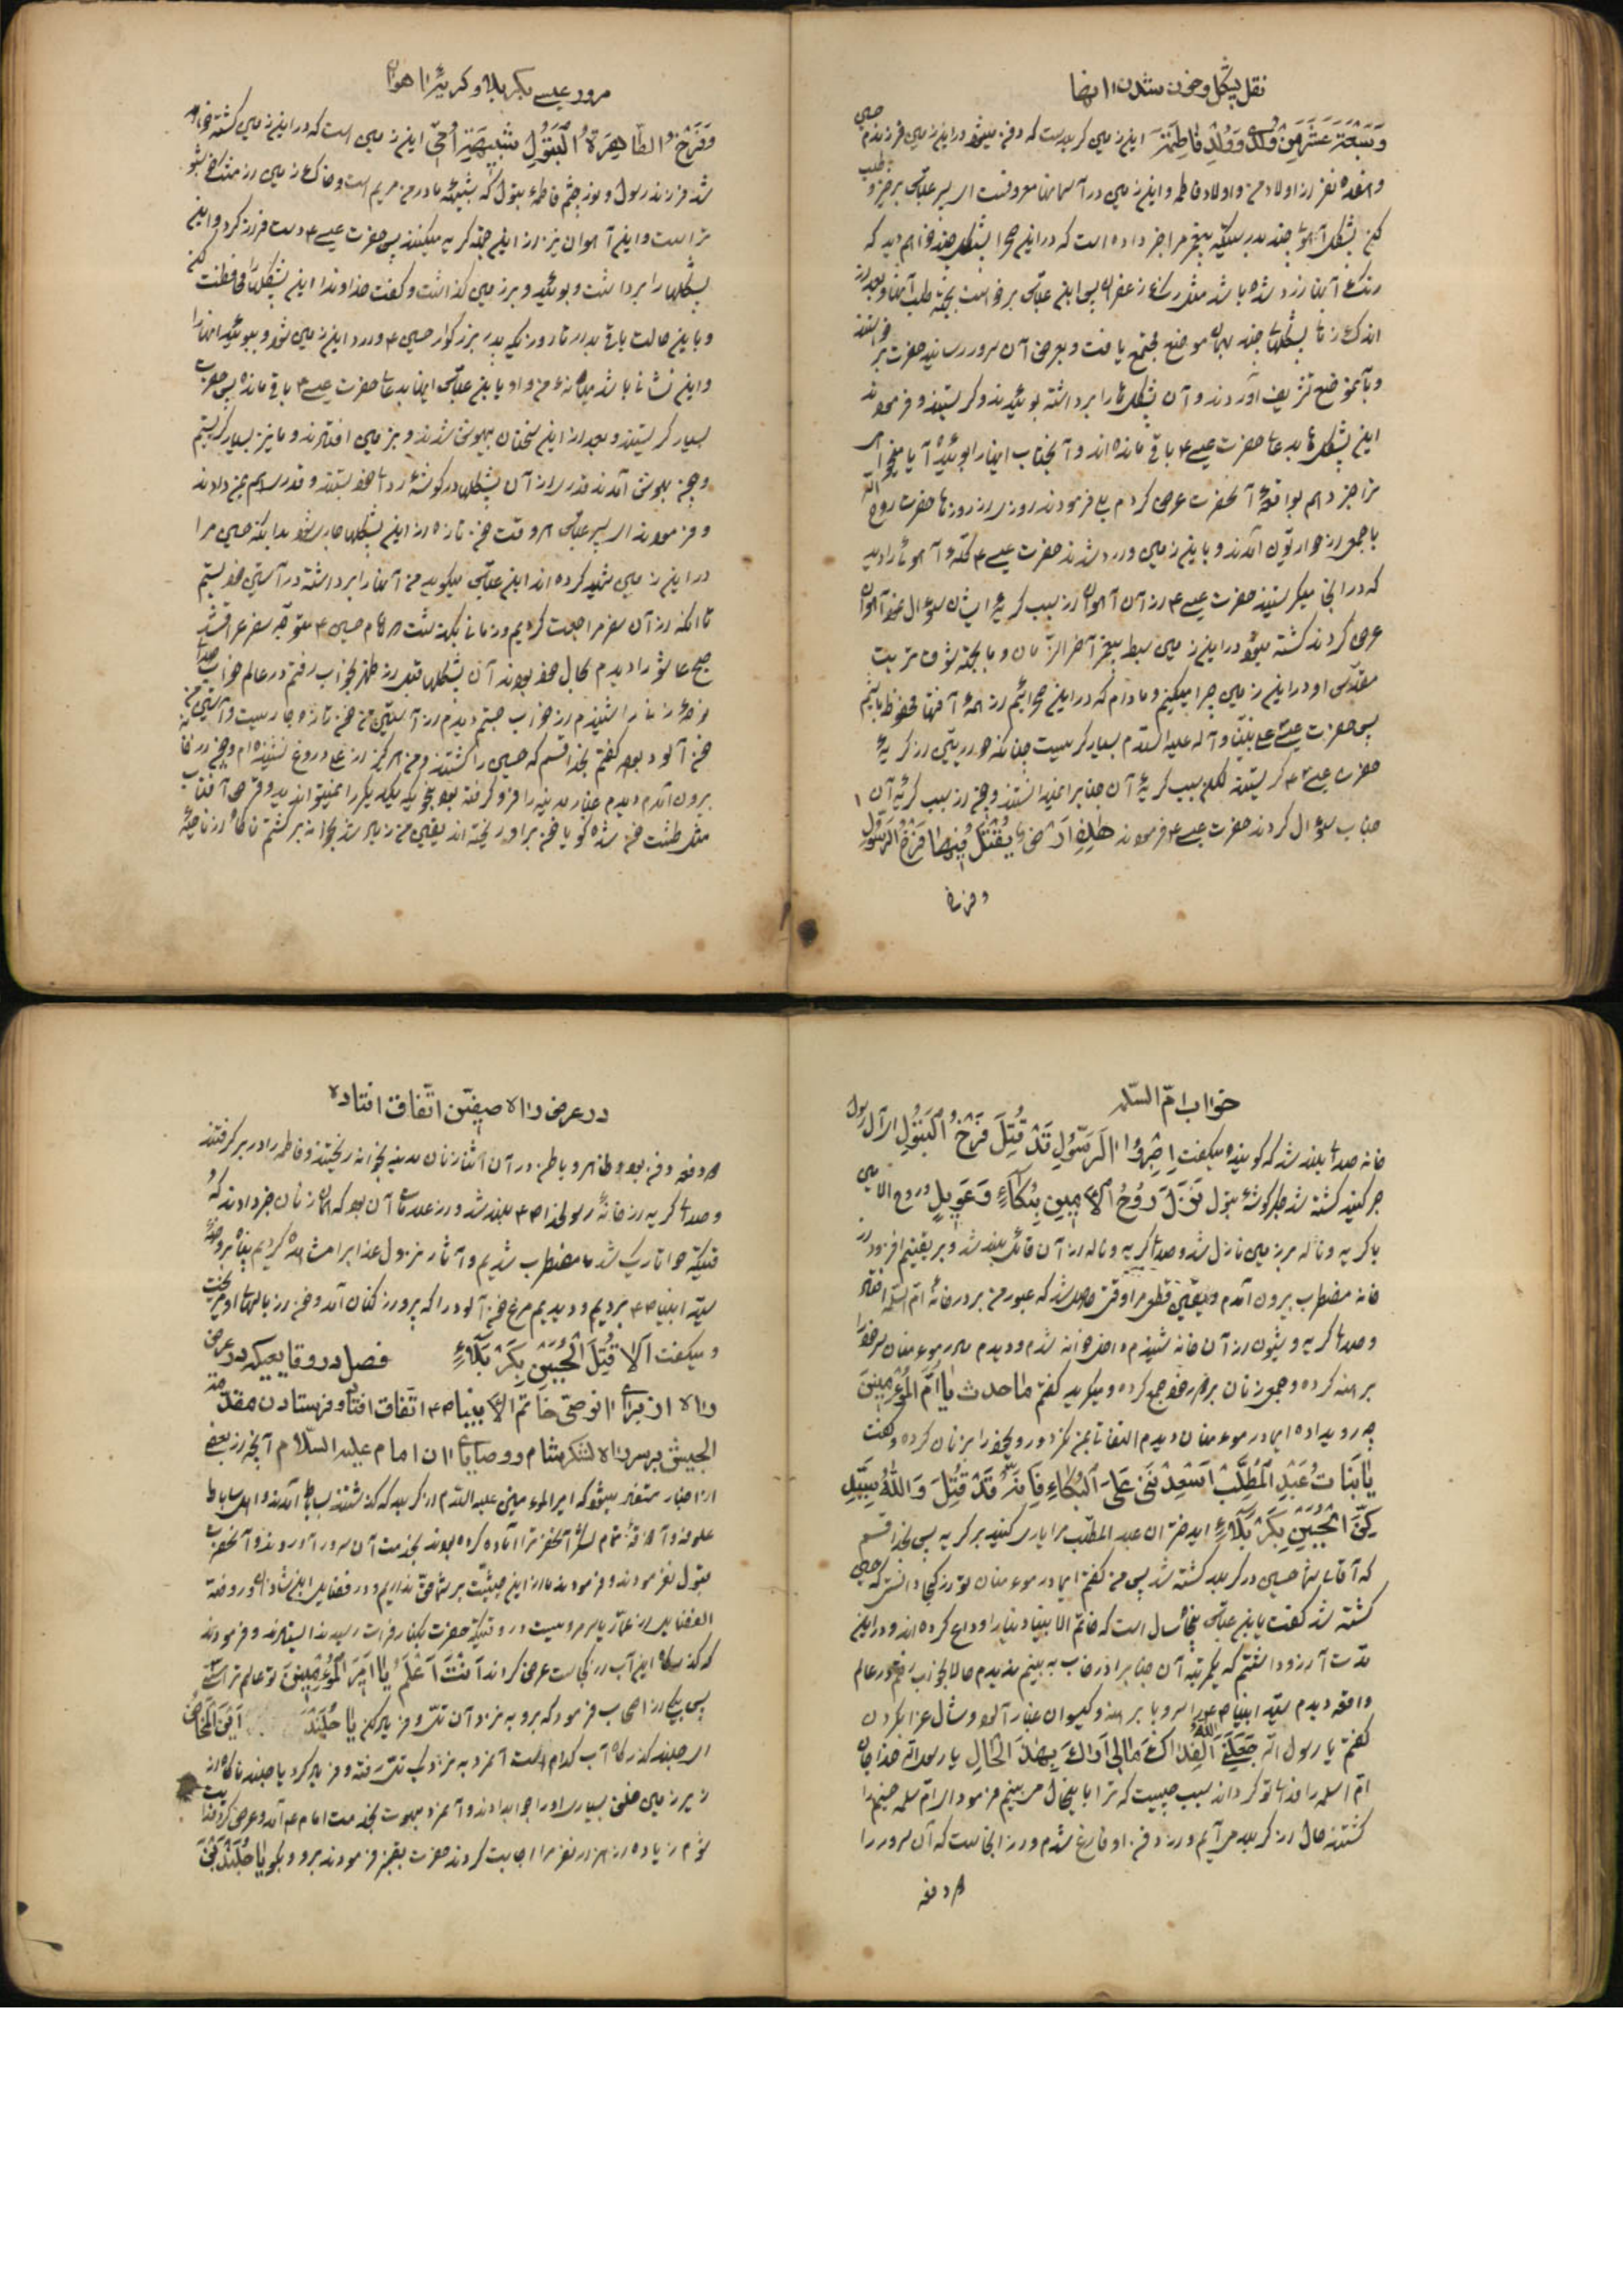 نقل پشکل و خون شدن انها
وَسَبْعَةَ عَشَرَ مِنْ وُلْدی وَوُلْدِ فَاطِمَة این زمین کربلاست که دفن میشود در این زمین فرزندم حسین
و هفده نفر از اولاد من و اولاد فاطمه و این زمین در آسمانها معروفست ای پسر عباس برخیز و طلب
کن پشکل آهوئی چند بدرستیکه پیغمبر مرا خبر داده است که در این صحرا پشکلی چند خواهم دید که
رنگ آنها زرد شده باشد مثل رنگ زعفران پس ابن عباس برخواست بجهة طلب آنها و بعد از
اندک زمانی پشکلهای چند بهمان موضع مجتمع یافت و بعرض آن سرور رسانید حضرت برخواستند
و بآنموضع تشریف آوردند و آن پشکل ها را برداشته بوئیدند و کریستند و فرمودند
این پشکل ها بدعای حضرت عیسی ۴ باقی مانده اند و آنجناب اینها را بوئیده آیا میخواهی
ترا خبر دهم بواقعهٔ آنحضرت عرض کردم بلی فرمودند روزی از روزها حضرت روح الله
با جمعی از حواریون آمدند و باین زمین وارد شدند حضرت عیسی ۴ گله آهوئی را دید
که در آنجا میکریستند حضرت عیسی ۴ از آن آهوان از سبب کریهٔ ایشان سوال نمود آهوان
عرض کردند کشته میشود در این زمین سبط پیغمبر آخر الزمان و ما بجهة شوق تربت
مقدس او در این زمین چرا میکنیم و مادام که در این صحرائیم از همهٔ آفتها محفوظ باشیم
پس حضرت عیسی علی نبینا و آله علیه السلام بسیار کریست چنانکه حواریین از کریهٔ
حضرت عیسی ۴ کریستند لکن سبب کریهٔ آن جنابرا نمیدانستند و چون از سبب کریهٔ آن
جناب سؤال کردند حضرت عیسی ۴ فرمودند هٰذِهِ اَرْضٌ یُقْتَلُ فِیهَا فَرْخُ الرَّسُولِ
و فرخ
مرور عیسی بکربلا و کریهٔ اهوان
وَفَرْخُ الطّاهِرَةِ الْبَتُولِ شَبِیهَةِ اُمّی این زمین است که در این زمین کشته خواهد
شد فرزند رسول و نور چشم فاطمهٔ بتول که شبیهٔ مادر من مریم است و خاک این زمین از مشک خوشبو
تر است و این آهوان نیز از این جهة کریه میکنند پس حضرت عیسی ۴ دست دراز کرد و این
پشکلها را برداشت و بوئید و بر زمین گذاشت و گفت خداوندا این پشکلها را محافظت کن
و باین حالت باقی بدار تا روزیکه پدر بزرگوار حسین ۴ وارد این زمین شود و ببوید اینها را
و این نشانه باشد میانهٔ من و او یا ابن عباس اینها بدعای حضرت عیسی ۴ باقی مانده پس حضرت
بسیار کریستند و بعد از این سخنان بیهوش شدند و بر زمین افتادند و ما نیز بسیار کریستیم
و چون بهوش آمدند قدری از آن پشکلها در کوشهٔ ردای خود بستند و قدری هم بمن دادند
و فرمودند ای پسر عباس هر وقت خون تازه از این پشکلها جاری شود بدانکه حسین مرا
در این زمین شهید کرده اند ابن عباس میکوید من آنها را برداشته در آستین خود بستم
تا آنکه از آن سفر مراجعت کردیم و زمانی بگذشت تا امام حسین ۴ متوجه سفر عراق شد
صبح عاشورا دیدم بحال خود بودند آن پشکلها قبل از ظهر بخواب رفتم در عالم خواب صدای
نوحهٔ زنان را شنیدم از خواب جستم دیدم از آستین من خون تازه جاریست و آستین من
خون آلود بود گفتم بخدا قسم که حسین را کشتند و من هرگز از علی دروغ نشنیده ام و چون از خانه
بیرون آمدم دیدم غبار مدینه را فرو گرفته بود بنحویکه یکدیگر را نمیتوان دید و قرص آفتاب
مثل طشت خون شده گویا خون بر او ریخته اند یقین من زیاد شد بخانه برگشتم ناگاه از ناحیهٔ
خواب امّ السلمه
خانه صدای بلند شد که گوینده میگفت اِصْبِرُوا اٰلَ الرَّسُولِ قَدْ قُتِلَ فَرْخُ الْبَتُولِ ای آل رسول
صبر کنید کشته شد جگر گوشهٔ بتول نَزَلَ رُوحُ الْاَمِینِ بِبُکَآءٍ وَعَوِیلٍ و روح الامین
با گریه و ناله بر زمین نازل شد و صدای گریه و ناله از آن قائل بلند شد و بر یقینم افزود از
خانه مضطرب بیرون آمدم و یقین قطعی مرا وقتی حاصل شد که عبور من بر در خانهٔ ام السلمه افتاد
و صدای گریه و شیون از آن خانه شنیدم داخل خانه شدم و دیدم مادر مؤمنان سر خود را
برهنه کرده و جمعی زنان بر دور خود جمع کرده و میگرید گفتم ما حدث یٰا اُمَّ الْمُؤْمِنینَ
چه رویداده ای مادر مؤمنان دیدم التفاتی بمن نکرد و رو بخود را بزنان کرده و گفت
یٰا بَنَاتِ عَبْدِ الْمُطَّلِبِ اسْعِدْنَنی عَلَی الْبُکَاءِ فَاِنَّهُ قَدْ قُتِلَ وَاللّٰهِ سَیِّدِی
الْحُسَیْنُ بِکَرْبَلٰآءِ ای دختران عبد المطلب مرا یاری کنید بر گریه پس بخدا قسم
که آقای شما حسین در کربلا کشته شد پس من گفتم ای مادر مؤمنان تو از کجا دانستی که حسین
کشته شد گفت یا ابن عباس پنجاه سال است که خاتم الانبیا دنیا را وداع کرده اند و در این
مدت آرزو داشتم که یکمرتبه آن جنابرا در خواب به بینم ندیدم حالا بخواب رفتم در عالم
واقعه دیدم سیّد انبیا ص را سر و پا برهنه و گیسوان غبار آلود و شال عزا بگردن
گفتم یا رسول الله جَعَلَنِیَ اللّٰهُ فِدٰاکَ مٰالی اَرٰاکَ بِهٰذَا الْحٰالِ یا رسول الله خدا جان
ام اسلمه را فدای تو گرداند سبب چیست که ترا باینحال می بینم فرمود ای ام سلمه حسینم را
کشتند حال از کربلا می آیم و از دفن او فارغ شدم و از اینجاست که آن سرور را
در دفعه
در عرض راه صفین اتّفاق افتاده
دو دفعه دفن بود و ظاهر و باطن در آن اثنا زنان مدینه بخانه ریختند و فاطمه را در بر گرفتند
و صدای گریه از خانهٔ رسولخدا ص بلند شد و از علامات آن بود که همان زنان خبر دادند که
وقتیکه هوا تاریک شد ما مضطرب شدیم و آثار نزول عذاب را مشاهده کردیم پناه بروضهٔ
سیّد انبیا ص بردیم و دیدیم مرغ خون آلود را که پرواز کنان آمد و خون از بالهای او میریخت
و میگفت اَلٰا قُتِلَ الْحُسَیْنُ بِکَرْبَلٰآءِ فصل در وقایعیکه در عرض
راه از برای وصیّ خاتم الانبیا ص اتّفاق افتاد و فرستادن مقدمة
الجیش بر سر راه لشکر شام و وصایای ان امام علیه السّلام آنچه از بعضی
از اخبار مستفاد میشود که امیر المؤمنین علیه السلام از کربلا که گذشتند بساباط آمدند و اهل ساباط
علوفه و آذوقهٔ تمام لشکر آنحضرت را آماده کرده بودند بخدمت آن سرور آوردند و آنحضرت
قبول نفرمودند و فرمودند ما را از این حیثیت بر شما حقی نداریم و در فضایل ابن شاذان و روضة
الفضایل از عمار یاسر مرویست در وقتیکه حضرت بکنار فرات رسیدند ایستادند و فرمودند
که گذرگاه این آب از کجاست عرض کردند اَنْتَ اَعْلَمُ یٰا اَمیرَ الْمُؤْمِنینَ تو عالم تر استی
پس بیکی از اصحاب فرمود که برو به نزد آن تل و فریاد کن یٰا جُلَنْدُ اَیْنَ الْمَخٰاضُ
ای جلند گذرگاه آب کدام است آنمرد به نزدیک تل رفته و فریاد کرد یا جلند ناگاه از
زیر زمین خلق بسیاری او را جواب دادند و آنمرد مبهوت بخدمت امام ۴ آمد و عرض کرد فدایت
شوم زیاده از هزار نفر مرا اجابت کردند حضرت بقنبر فرمودند برو و بگو یٰا جُلَنْدُ بْنَ